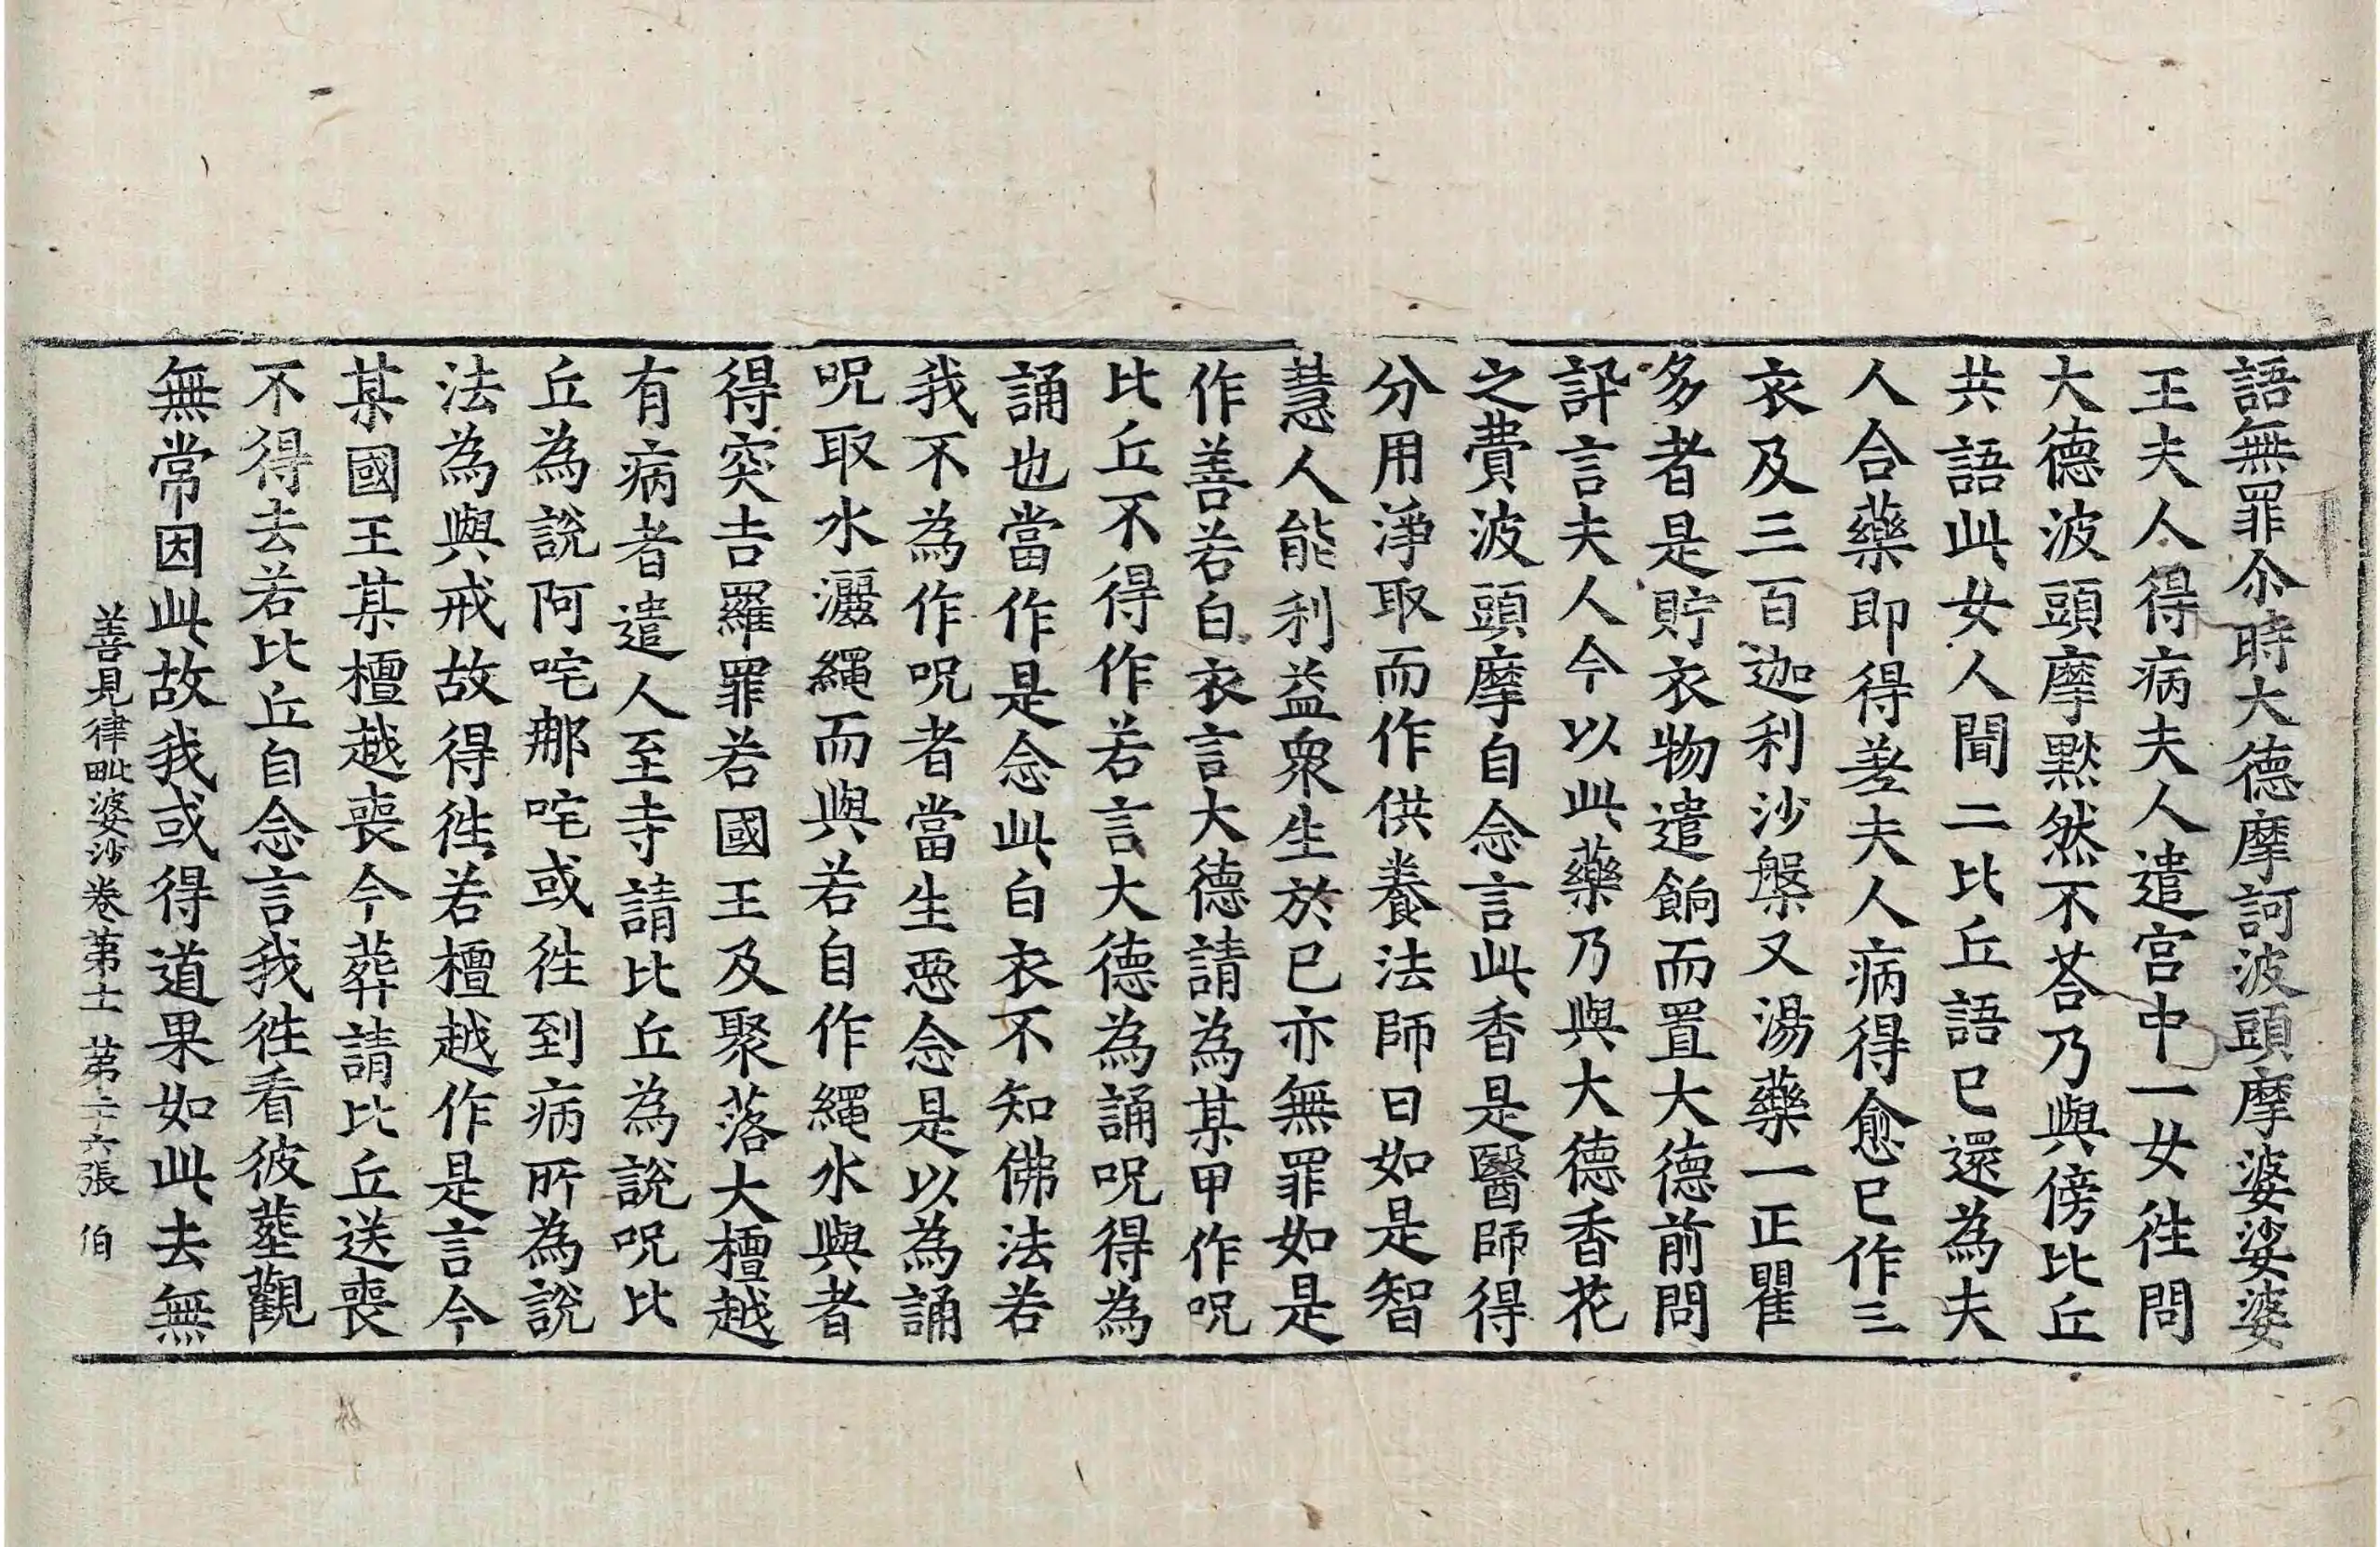 語無罪尒時大德摩訶波頭摩婆娑婆
王夫人得病夫人遣宮中一女徃問
大德波頭摩默然不荅乃與傍比丘
共語此女人聞二比丘語已還為夫
人合藥即得差夫人病得愈已作三
衣及三百迦利沙槃又湯藥一正瞿
多者是貯衣物遣餉而置大德前問
訊言夫人今以此藥乃與大德香花
之費波頭摩自念言此香是醫師得
分用淨取而作供養法師曰如是智
慧人能利益衆生於已亦無罪如是
作善若白衣言大德請為某甲作呪
比丘不得作若言大德為誦呪得為
誦也當作是念此白衣不知佛法若
我不為作呪者當生惡念是以為誦
呪取水灑繩而與若自作繩水與者
得突吉羅罪若國王及聚落大檀越
有病者遣人至寺請比丘為說呪比
丘為說阿咤那咤或徃到病所為說
法為與戒故得徃若檀越作是言今
某國王某檀越喪今葬請比丘送喪
不得去若比丘自念言我徃看彼葬觀
無常因此故我或得道果如此去無
善見律毗婆沙卷苐十一 苐二十六張 伯